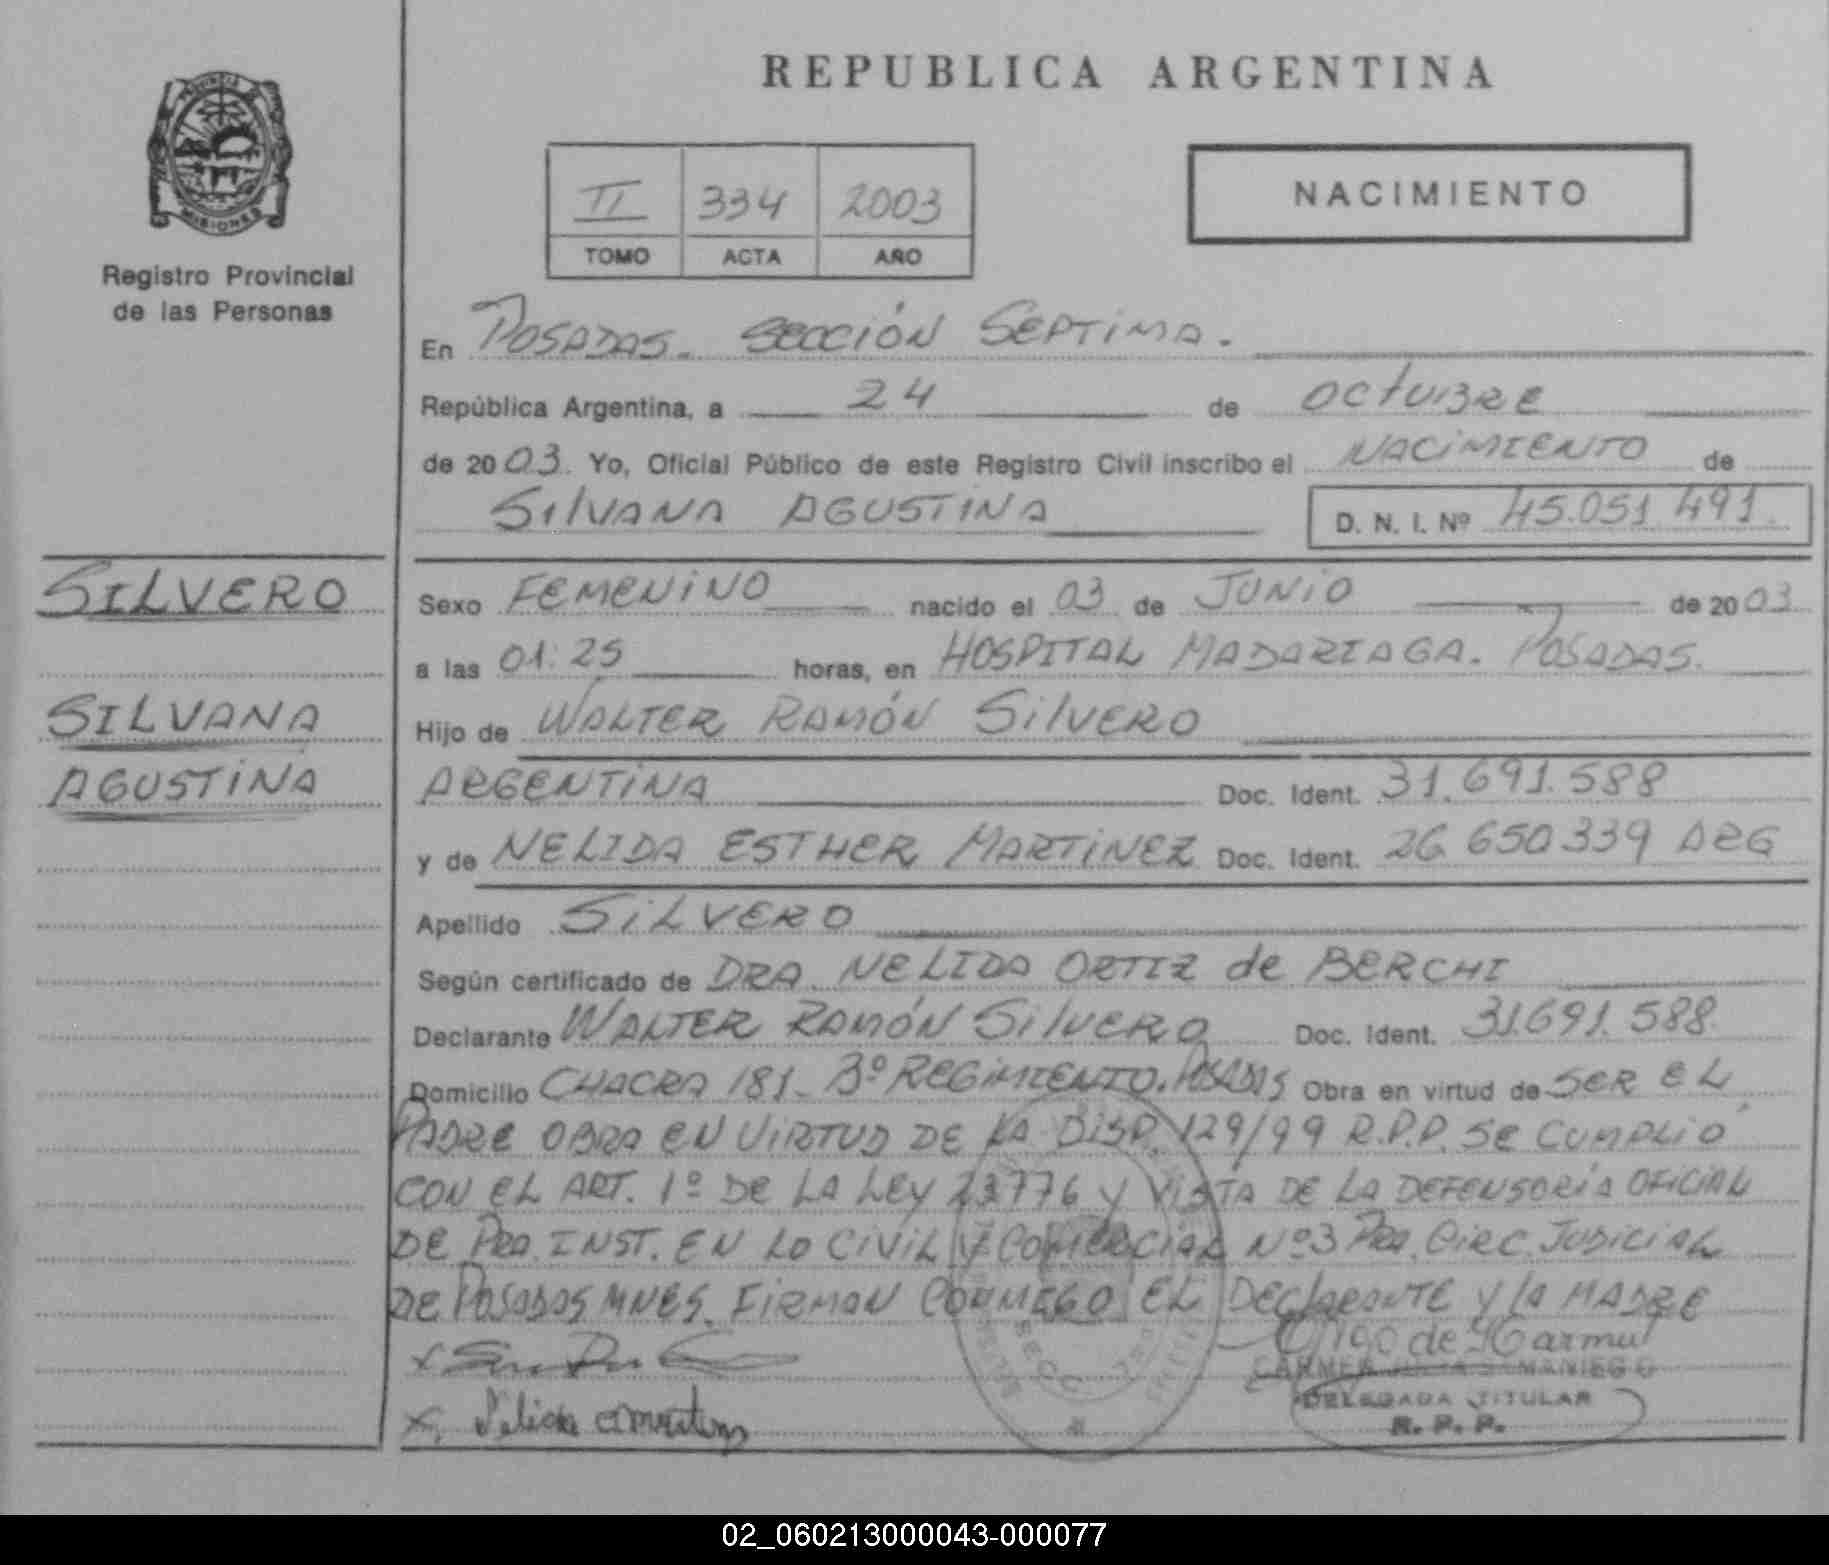 REPUBLICA ARGENTINA
PROVINCIA DE
MISIONES
Registro Provincial
de las Personas
II 334 2003
TOMO ACTA AÑO
NACIMIENTO
En POSADAS. SECCIÓN SEPTIMA.
República Argentina, a 24 de OCTUBRE
de 2003. Yo, Oficial Público de este Registro Civil inscribo el NACIMIENTO de
SILVANA AGUSTINA D. N. I. Nº 45.051.491.
SILVERO
SILVANA
AGUSTINA
Sexo FEMENINO nacido el 03 de JUNIO de 2003
a las 01:25 horas, en HOSPITAL MADARIAGA. POSADAS.
Hijo de WALTER RAMÓN SILVERO
ARGENTINA Doc. Ident. 31.691.588
y de NELIDA ESTHER MARTINEZ Doc. Ident. 26.650.339 ARG
Apellido SILVERO
Según certificado de DRA. NELIDA ORTIZ de BERCHI
Declarante WALTER RAMÓN SILVERO Doc. Ident. 31.691.588
Domicilio CHACRA 181- 3º REGIMIENTO. POSADAS Obra en virtud de SER EL
PADRE OBRA EN VIRTUD DE LA DISP. 129/99 R.P.P. SE CUMPLIÓ
CON EL ART. 1º DE LA LEY 23776 Y VISTA DE LA DEFENSORÍA OFICIAL
DE PRA. INST. EN LO CIVIL Y COMERCIAL Nº3 PRA. CIRC. JUDICIAL
DE POSADAS MNES. FIRMAN CONMIGO EL DECLARANTE Y LA MADRE
CARMEN JULIA SAMANIEGO
DELEGADA TITULAR
R. P. P.
02_060213000043-000077